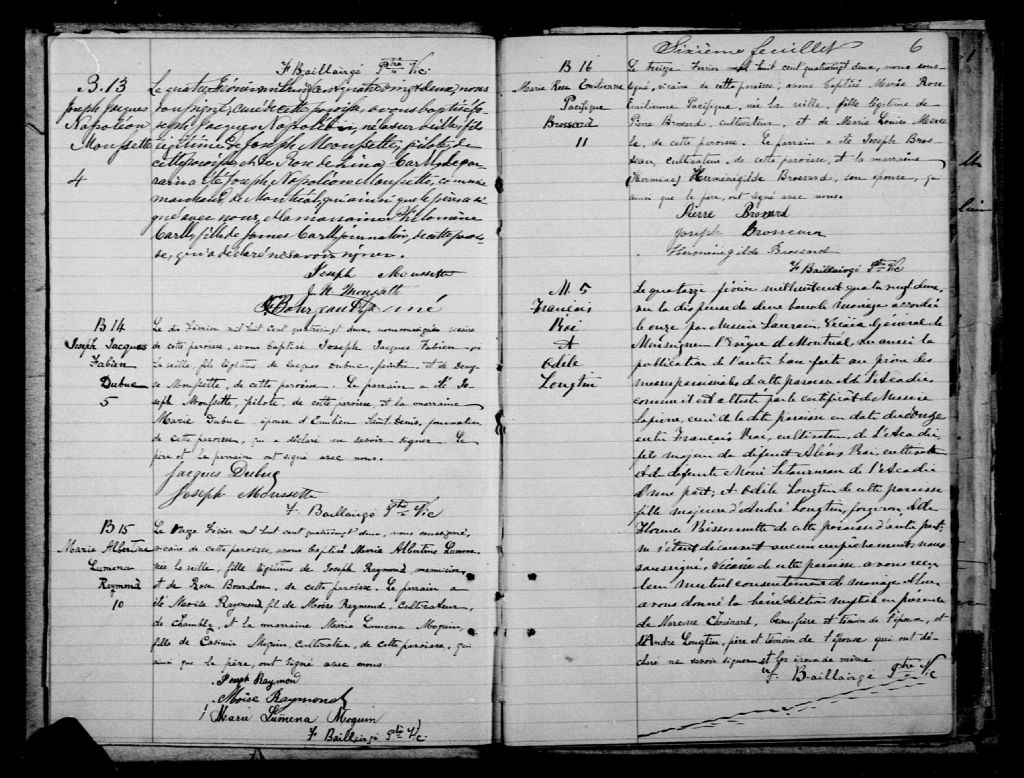 F Baillairgé Ptre Vic:
B. 13
Joseph Jacques
Napoléon
Moussette
4
Le quatre Février mil huit cent quatre vingt deux, nous
soussigné, curé de cette paroisse, avons baptisé Jo-
seph Jacques Napoléon, né la surveille, fils
légitime de Joseph Moussette, pilote, de
cette paroisse, et de Rose de Lima Carll, le par-
rain a été Joseph Napoléon Moussette, commis
marchand, de Montréal, qui ainsi que le père a si-
gné avec nous, et la marraine Philomène
Carll, fille de James Carll, journalier, de cette parois-
se, qui a déclaré ne savoir signer.
Joseph Moussette
J. N. Moussette
B 14
Joseph Jacques
Fabien
Dubuc
5
Le dix Février mil huit cent quatrevingt deux, nous soussigné, vicaire
de cette paroisse, avons baptisé Joseph Jacques Fabien né
la veille, fils légitime de Jacques Dubuc, peintre, et de
Moussette, de cette paroisse. Le parrain a été Jo-
seph Moussette, pilote, de cette paroisse, et la marraine
Marie Dubuc, épouse d'Emilien Saint Denis, journalier
de cette paroisse, qui a déclaré ne savoir signer. Le
père et le parrain ont signé avec nous.
Jacques Dubuc
Joseph Moussette
F. Baillairgé Ptre Vic
B 15
Marie Albertine
Lumena
Raymond
10
Le onze Février mil huit cent quatrevingt deux, nous soussigné,
vicaire de cette paroisse, avons baptisé Marie Albertine Lumena,
née la veille, fille légitime de Joseph Raymond menuisier,
et de Rose Bourdon, de cette paroisse. Le parrain a
été Moïse Raymond fils de Moïse Raymond, cultivateur,
de Chambly, et la marraine Marie Lumena Moquin,
fille de Casimir Moquin, cultivateur, de cette paroisse, qui
ainsi que le père, ont signé avec nous.
Joseph Raymond
Moïse Raymond
Marie Lumena Moquin
F Baillairgé Ptre Vic.
Sixième feuillet 6
B 16
Marie Rose Emilienne
Pacifique
Brossard
11
Le treize Février mil huit cent quatrevingt deux, nous sous-
signé, vicaire de cette paroisse, avons baptisé Marie Rose
Emilienne Pacifique, née la veille, fille légitime de
Pierre Brossard, cultivateur, et de Marie Louise
de cette paroisse. Le parrain a été Joseph Bros-
seau, cultivateur, de cette paroisse, et la marraine
(Hermine) Herménégilde Brossard, son épouse, qui
ainsi que le père, ont signé avec nous.
Pierre Brossard
Joseph Brosseau
Herménégilde Brossard
F Baillairgé Ptre Vic
M. 5
Francois
Roi
et
Odile
Longtin
Le quatorze février mil huit cent quatre vingt deux,
vu la dispense de deux bancs de mariage accordée
le onze par Messire Vicaire Général de
Monseigneur l'Evêque de Montréal, vu aussi la
publication de l'autre ban faite au prône des
messes paroissiales de cette paroisse et de L'Acadie
comme il est attesté par le certificat de Messire
curé de la dite paroisse en date du douze
entre François Roi, cultivateur, de L'Acadie
fils majeur de défunt Alexis Roi, cultivateur
et de défunte Létourneau de l'Acadie
d'une part, et Odile Longtin de cette paroisse
fille majeure d'André Longtin, forgeron, et de
Florence Bissonnette de cette paroisse d'autre part,
ne s'étant découvert aucun empêchement, nous
soussigné, Vicaire de cette paroisse avons reçu
leur mutuel consentement de mariage et leur
avons donné la bénédiction nuptiale en présence
de Narcisse Chouinard, beau-frère et témoin de l'époux, et
d'André Longtin, père et témoin de l'épouse qui ont dé-
claré ne savoir signer et les époux de même
F. Baillairgé Ptre Vic